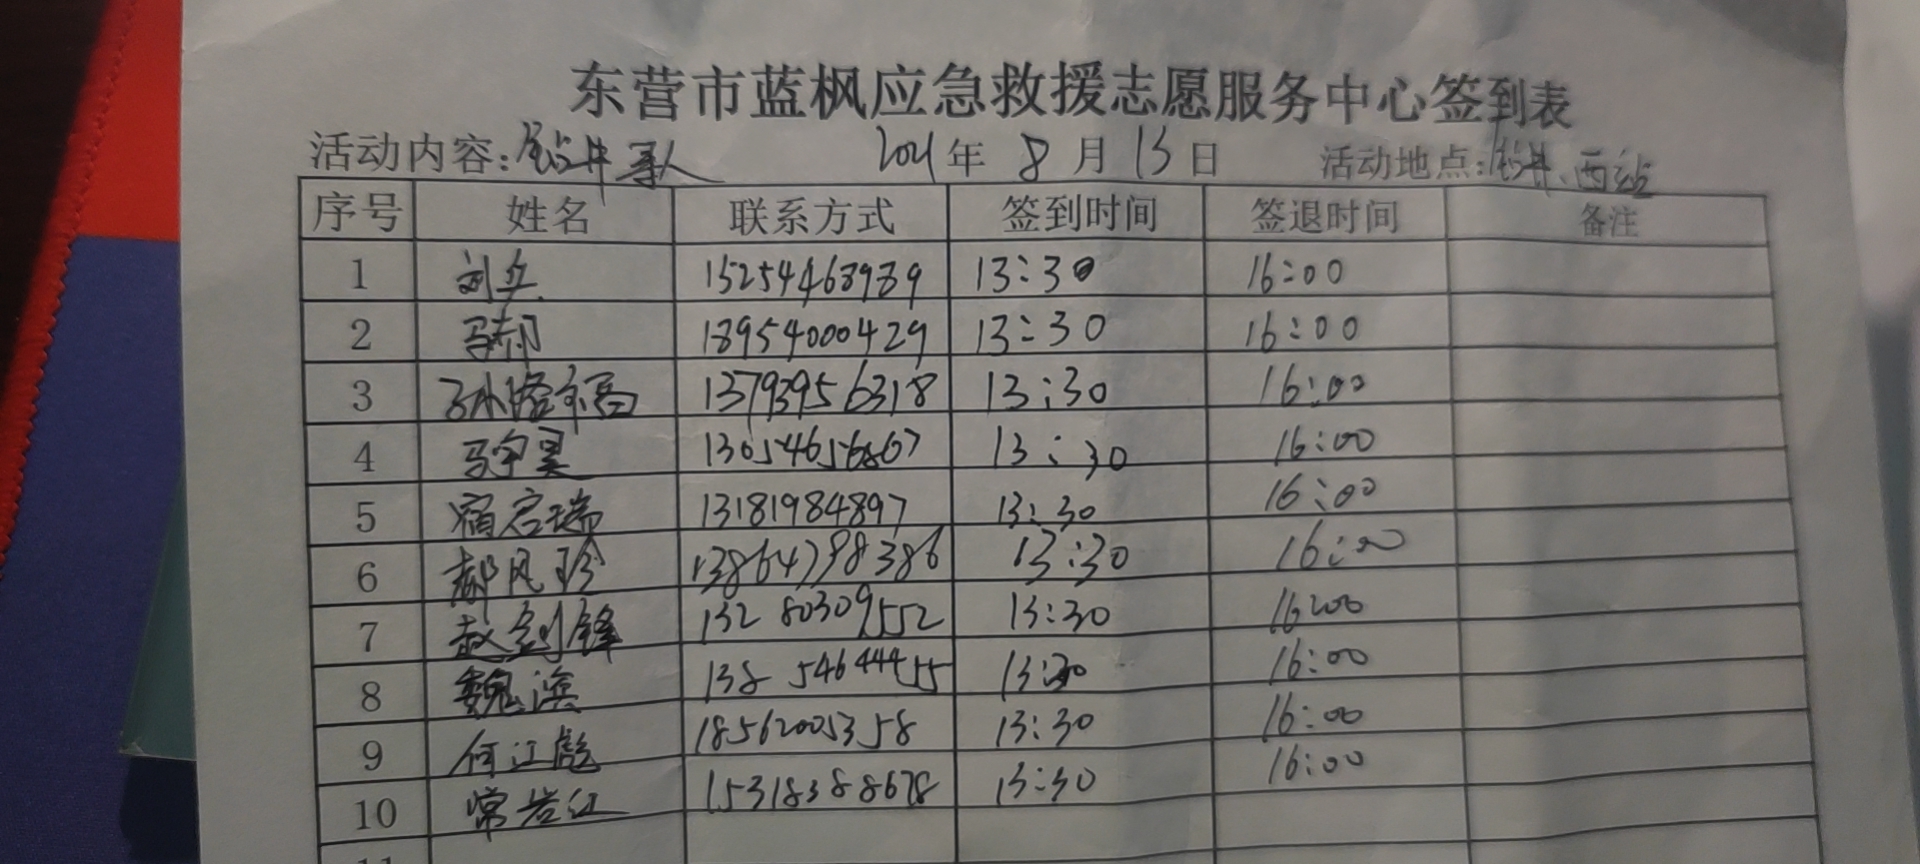 东营市蓝枫应急救援志愿服务中心签到表
活动内容：钻井寻人 2021年 8月 15日 活动地点：钻井、西站
序号 姓名 联系方式 签到时间 签退时间 备注
1 刘立 15254463939 13:30 16:00
2 马郝 18954000429 13:30 16:00
3 13793956318 13:30 16:00
4 马宇昊 13:30 16:00
5 宿启瑞 13181984897 13:30 16:00
6 郝风珍 13864798386 13:30 16:00
7 赵剑锋 13280309552 13:30 16:00
8 魏滨 13854644455 13:30 16:00
9 何江彪 18562005358 13:30 16:00
10 常岩红 15318388678 13:30 16:00
11